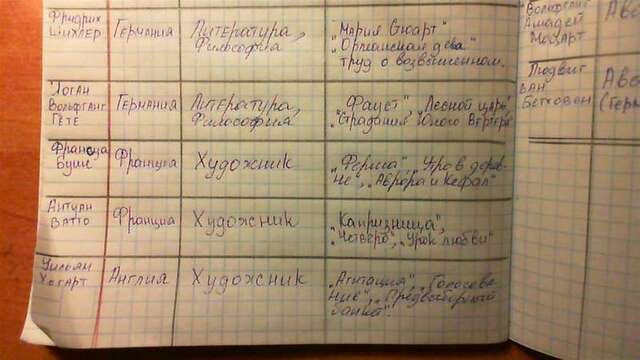 Фридрих
Шиллер
Германия
Литература,
Философия
„Мария Стюарт"
„Орлеанская дева"
труд о возвышенном.
Иоган
Вольфганг
Гёте
Германия
Литература,
Философия
„Фауст", „Лесной царь"
„Страдания Юного Вертера"
Франсуа
Буше
Франция
Художник
„Ферма", „Утро в дерев-
не", „Аврора и Кефал"
Антуан
Ватто
Франция
Художник
„Капризница",
„Четверо", „Урок любви"
Уильям
Хогарт
Англия
Художник
„Агитация", „Голосова-
ние", „Предвыборный
банкет".
Вольфганг
Амадей
Моцарт
Людвиг
ван
Бетховен